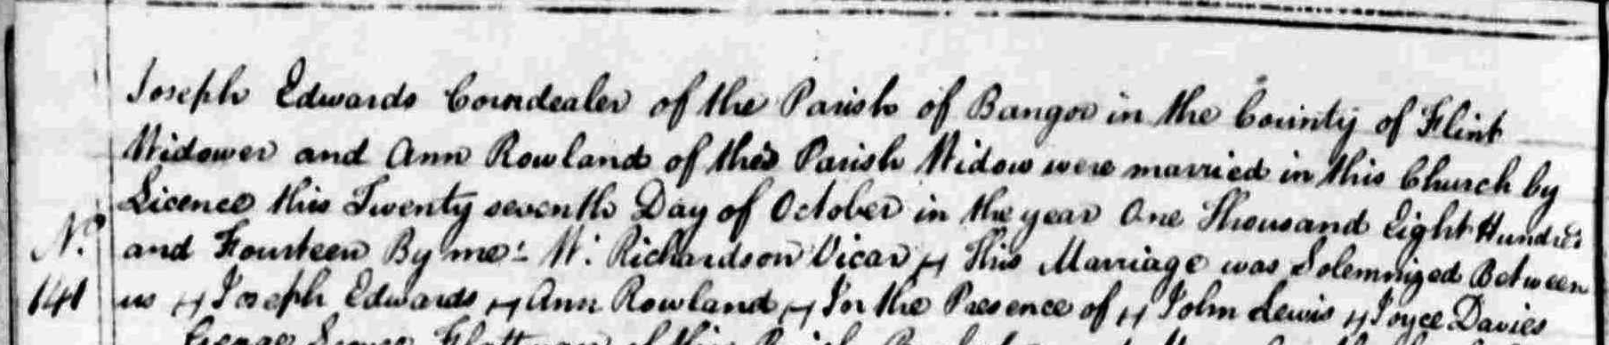 Joseph Edwards Corndealer of the Parish of Bangor in the County of Flint
Widower and Ann Rowland of this Parish Widow were married in this Church by
Licence this Twenty seventh Day of October in the year One Thousand Eight Hundred
No. and Fourteen By me: W: Richardson Vicar H This Marriage was Solemnized Between
141 us H Joseph Edwards H Ann Rowland H In the Presence of H John Lewis H Joyce Davies
George